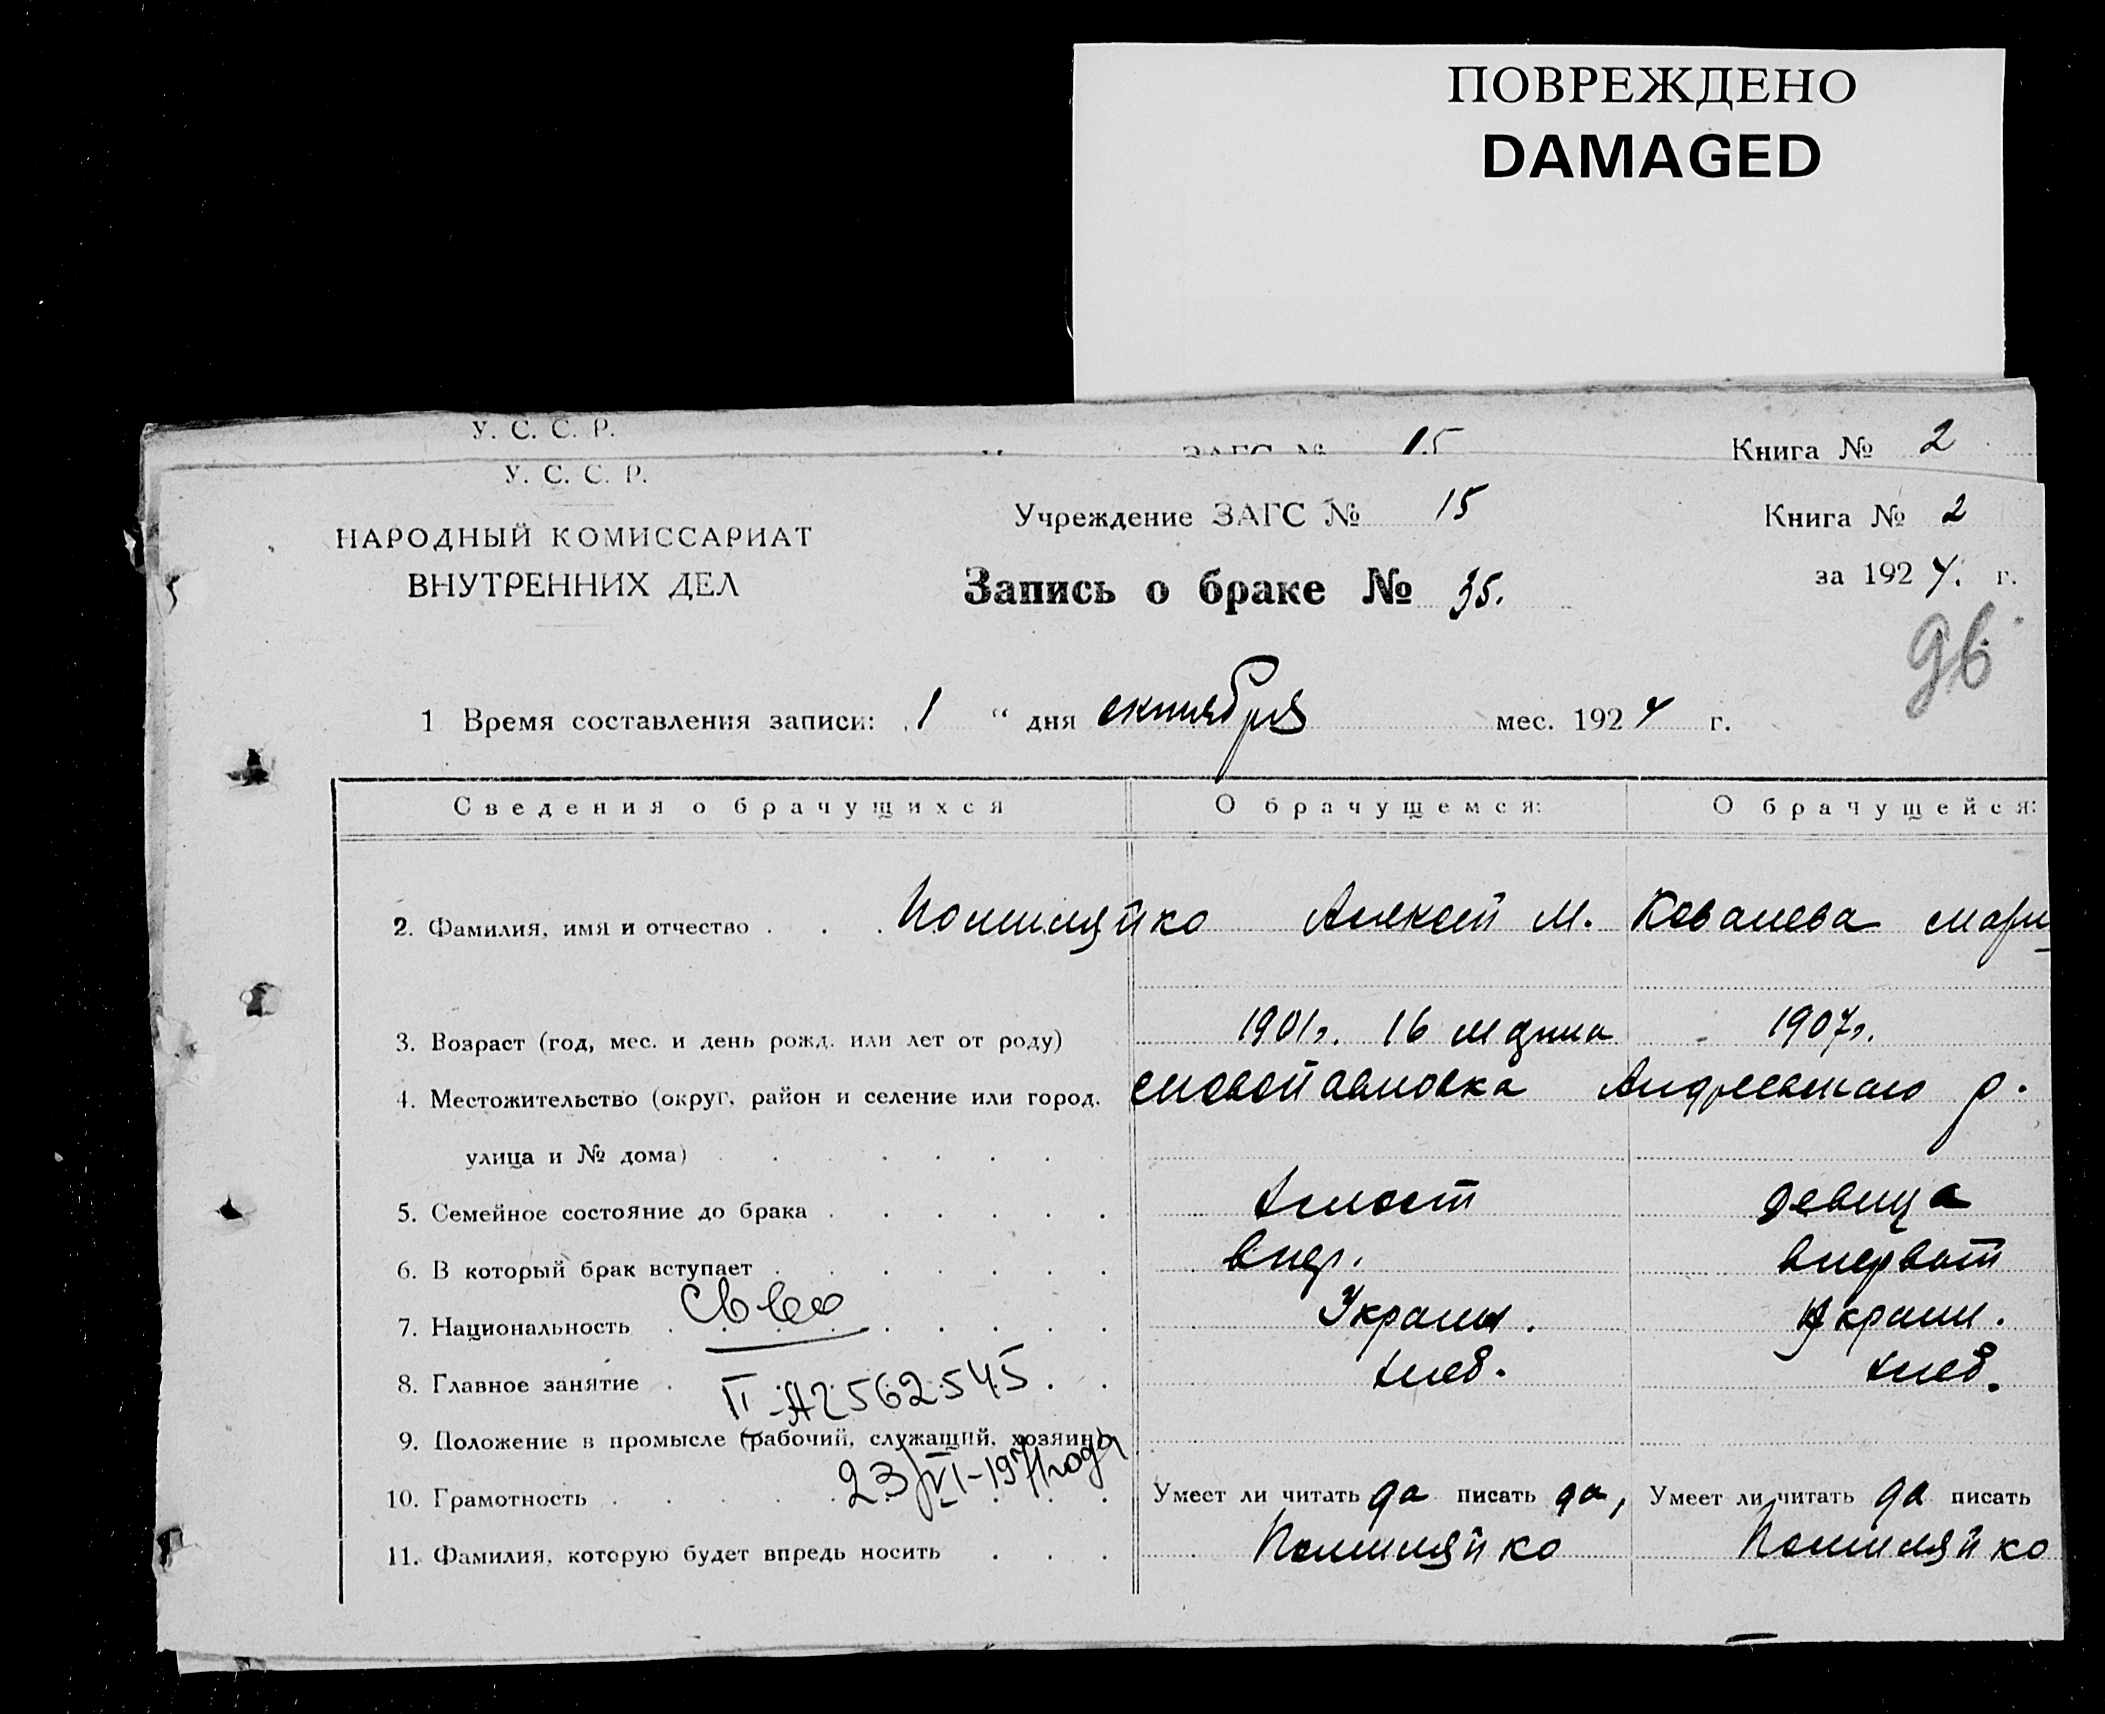 ПОВРЕЖДЕНО
DAMAGED
У. С. С. Р.
ЗАГС № 15
Книга № 2
У. С. С. Р.
НАРОДНЫЙ КОМИССАРИАТ
ВНУТРЕННИХ ДЕЛ
Учреждение ЗАГС № 15
Запись о браке № 35.
Книга № 2
за 1924. г.
96
1 Время составления записи: „1 “ дня октября мес. 1924 г.
Сведения о брачущихся О брачущемся: О брачущейся:
2. Фамилия, имя и отчество . . . Алексей М. Ковалева Мари
3. Возраст (год, мес. и день рожд. или лет от роду) 1901г. 16 1907г.
4. Местожительство (округ, район и селение или город, р.
улица и № дома)
5. Семейное состояние до брака . . . . . . холост девица
6. В который брак вступает . . . . . . . впер. первый
7. Национальность . . . . . . . . Украин. Украин.
Св-во
8. Главное занятие . . . хлеб. хлеб.
II-А2 562545
9. Положение в промысле (рабочий, служащий, хозяин)
23/VI-1971 года
10. Грамотность . . . . . . Умеет ли читать да писать да, Умеет ли читать да писать
11. Фамилия, которую будет впредь носить . . .